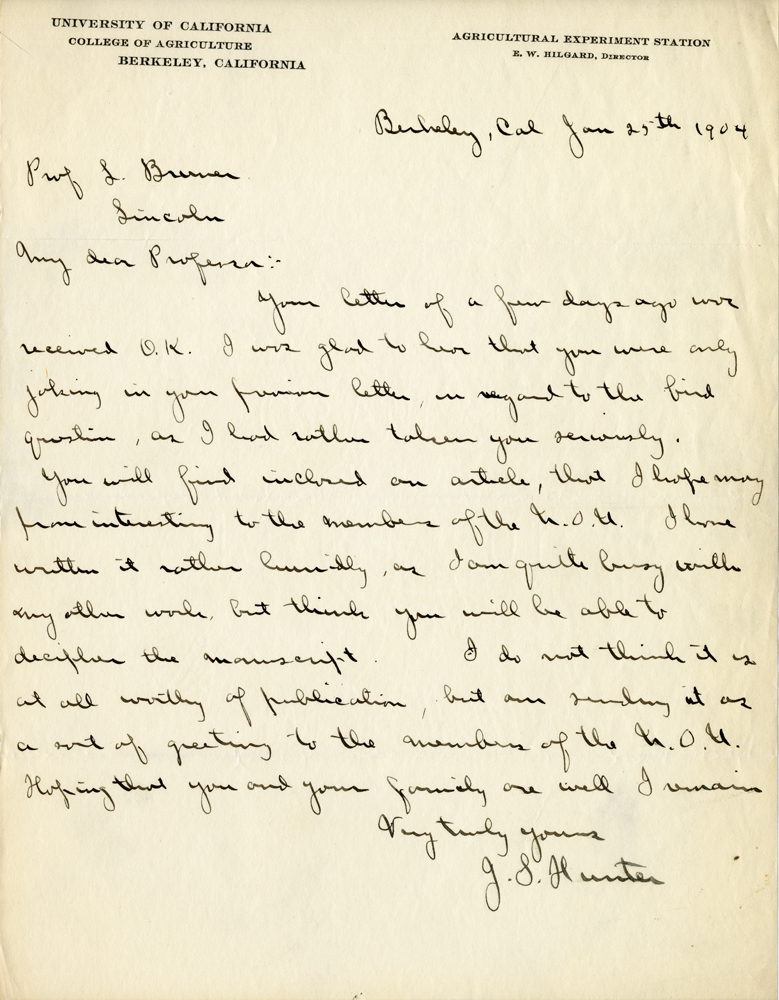 UNIVERSITY OF CALIFORNIA
COLLEGE OF AGRICULTURE
BERKELEY, CALIFORNIA
AGRICULTURAL EXPERIMENT STATION
E. W. HILGARD, DIRECTOR
Berkeley, Cal Jan 25th 1904
Prof L. Bruner
Lincoln
My dear Professor:-
Your letter of a few days ago was
received O.K. I was glad to hear that you were only
joking in your previous letter, in regard to the bird
question, as I had rather taken you seriously.
You will find inclosed an article, that I hope may
prove interesting to the members of the N.O.U. I have
written it rather hurriedly, as I am quite busy with
my other work, but think you will be able to
decipher the manuscript. I do not think it is
at all worthy of publication, but am sending it as
a sort of greeting to the members of the N.O.U.
Hoping that you and your family are well I remain
Very truly yours
J. S. Hunter